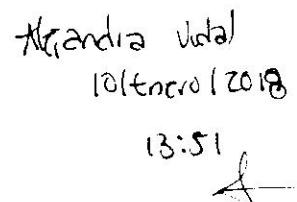 Alejandra Vidal
10/Enero/2018
13:51